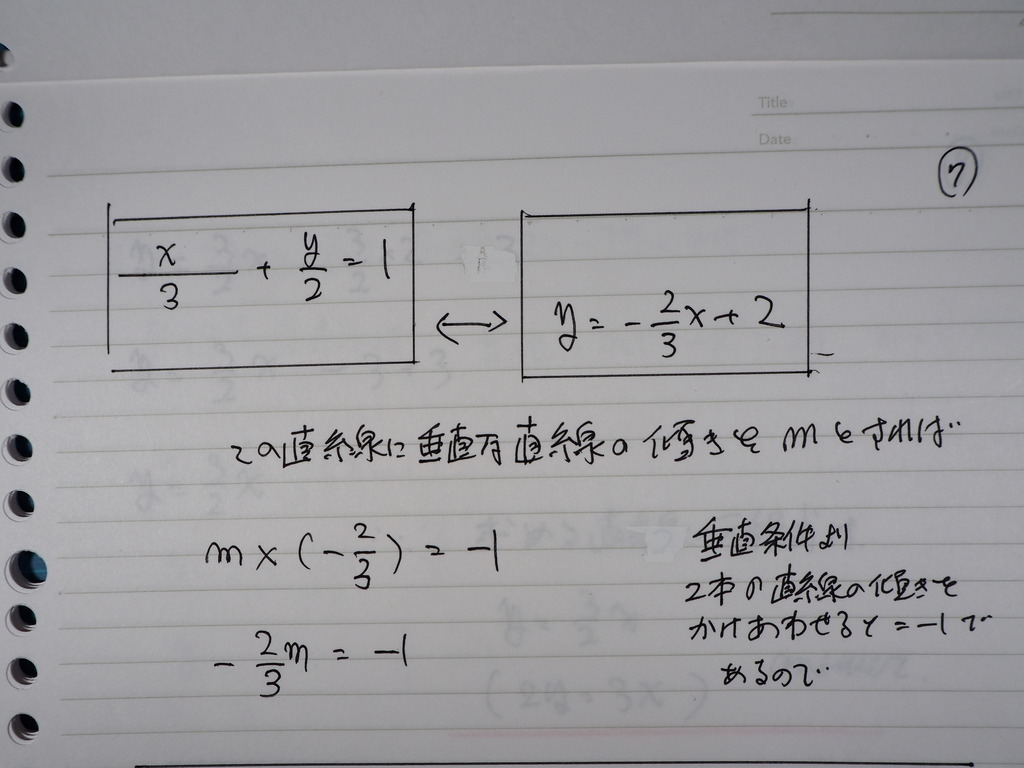 Title
Date
⑦
x/3 + y/2 = 1 ⟷ y = -2/3 x + 2
この直線に垂直な直線の傾きを m とすれば
m × (-2/3) = -1
-2/3 m = -1
垂直条件より
2本の直線の傾きを
かけあわせると = -1 で
あるので